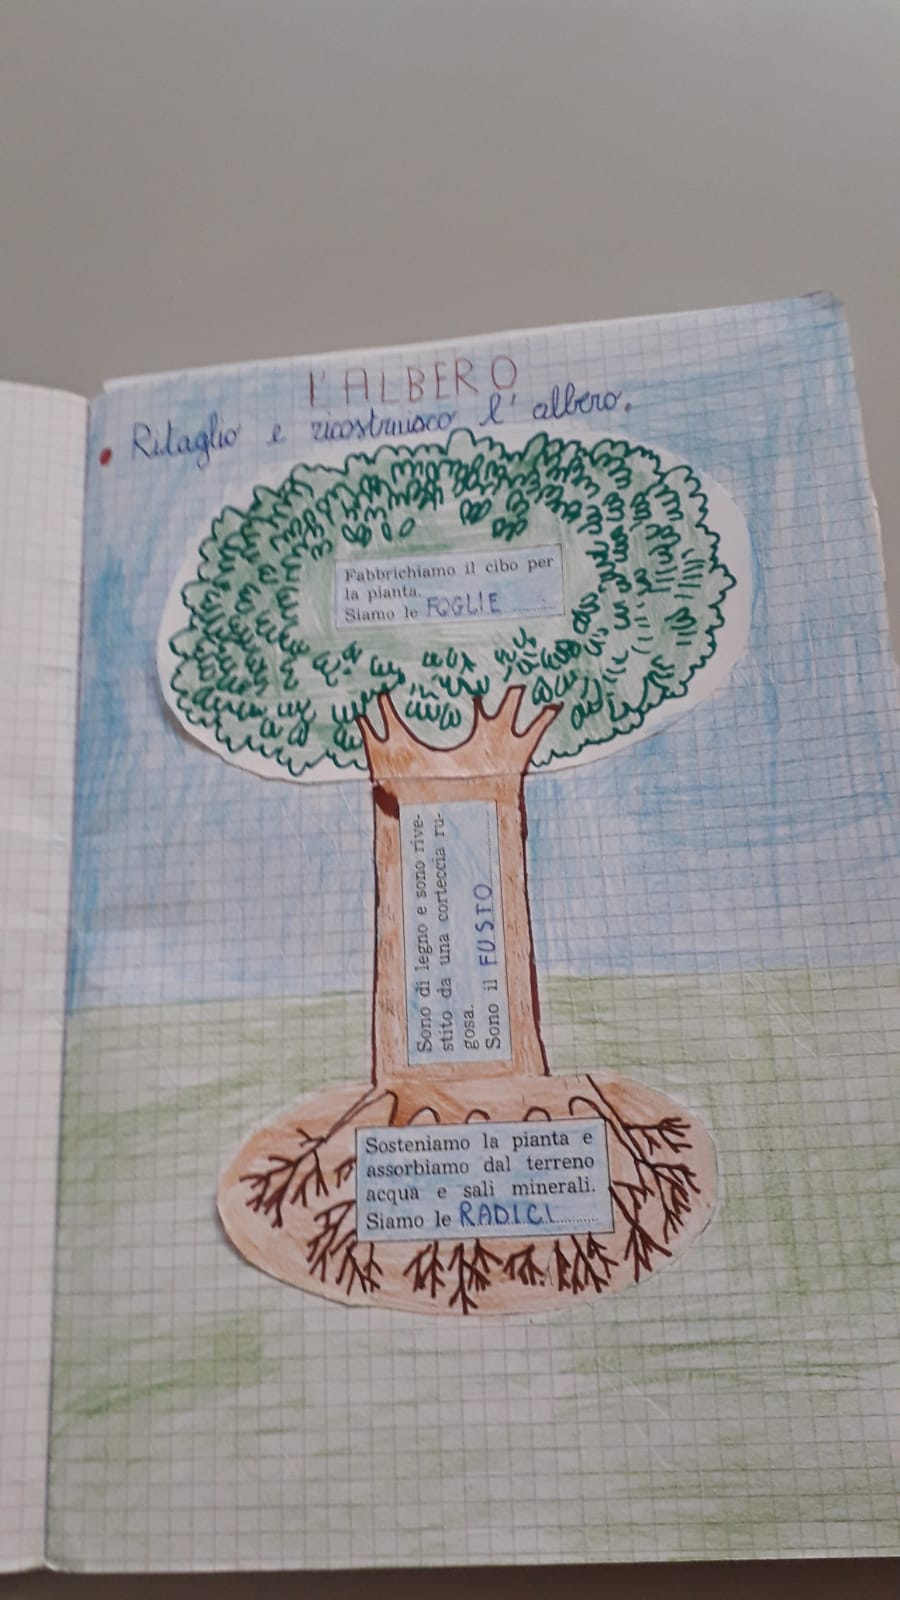 L'ALBERO
Ritaglio e ricostruisco l'albero.
Fabbrichiamo il cibo per
la pianta.
Siamo le FOGLIE
Sono di legno e sono rive-
stito da una corteccia ru-
gosa.
Sono il FUSTO
Sosteniamo la pianta e
assorbiamo dal terreno
acqua e sali minerali.
Siamo le RADICI